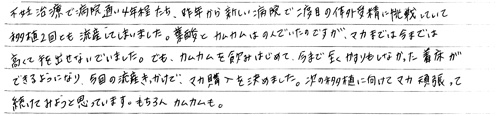 不妊治療で病院通い4年経たち、昨年から新しい病院で2度目の体外受精に挑戦していて
移植2回とも流産してしまいました。葉酸とカムカムはのんでいたのですが、マカまでは今までは
高くて手を出せないでいました。でも、カムカムを飲みはじめて、今まで全くかすりもしなかった着床が
できるようになり、今回の流産きっかけで、マカ購入を決めました。次の移植に向けてマカ頑張って
続けてみようと思っています。もちろんカムカムも。